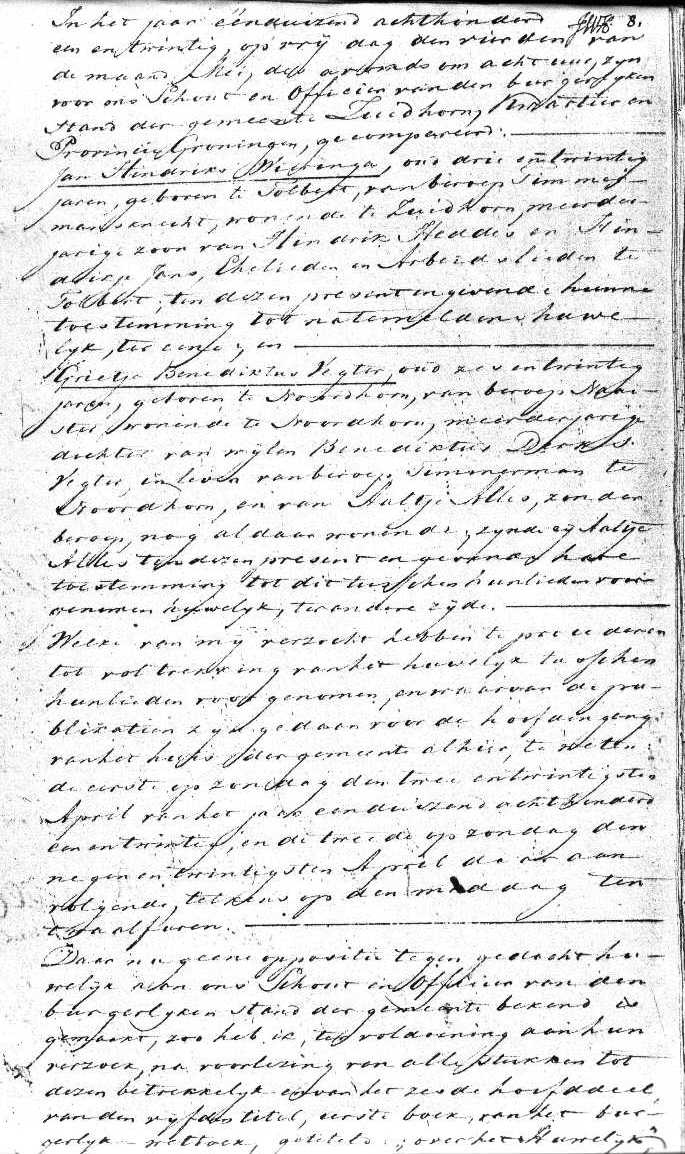 In het jaar éénduizend achthonderd 8.
een en twintig, op vrij dag den vierden van
de maand Mei, des avonds om acht uur, zyn
voor ons Schout en Officier van den burgerlyken
stand der gemeente Zuidhorn, Kwartier en
Provincie Groningen, gecompareerd:
Jan Hindriks Wierenga, oud drie en twintig
jaren, geboren te Tolbert, van beroep Timmer-
mansknecht, wonende te Zuidhorn, meerder-
jarige zoon van Hindrik Heddes en Hin-
derikje Jans, Ehelieden en Arbeidslieden te
Tolbert, ten dezen present en gevende hunne
toestemming tot natemelden huwe-
lyk, ter eene; en
Grietje Benediktus Vegter, oud zes en twintig
jaren, geboren te Noordhorn, van beroep Naai-
ster wonende te Noordhorn, meerderjarige
dochter van wylen Benediktus Derks
Vegter, in leven van beroep Timmerman te
Noordhorn, en van Aaltje Alles, zonder
beroep, nog aldaar wonende, zynde zy Aaltje
Alles ten dezen present en gevende hare
toestemming tot dit tusschen hunlieden voor-
genomen huwelyk, ter andere zyde.
Welke van my verzocht hebben te procederen
tot voltrekking van het huwelyk tusschen
hunlieden voorgenomen, en waarvan de pu-
blikatien zyn gedaan voor de hoofdingang
van het huis der gemeente alhier, te weten:
de eerste op zondag den twee en twintigsten
April van het jaar eenduizend achthonderd
een en twintig, en de tweede op zondag den
negen en twintigsten April daar aan
volgende, telkens op den middag ten
twaalf uren.
Daar nu geene oppositie tegen gedacht hu-
welyk aan ons Schout en Officier van den
burgerlyken stand der gemeente bekend is
gemaakt, zoo heb ik, ter voldoening aan hun
verzoek, na voorlezing van alle stukken tot
dezen betrekkelyk en van het zesde hoofddeel
van den vyfden titel, eerste boek, van het bur-
gerlyk wetboek, getiteld: „over het Huwelyk"